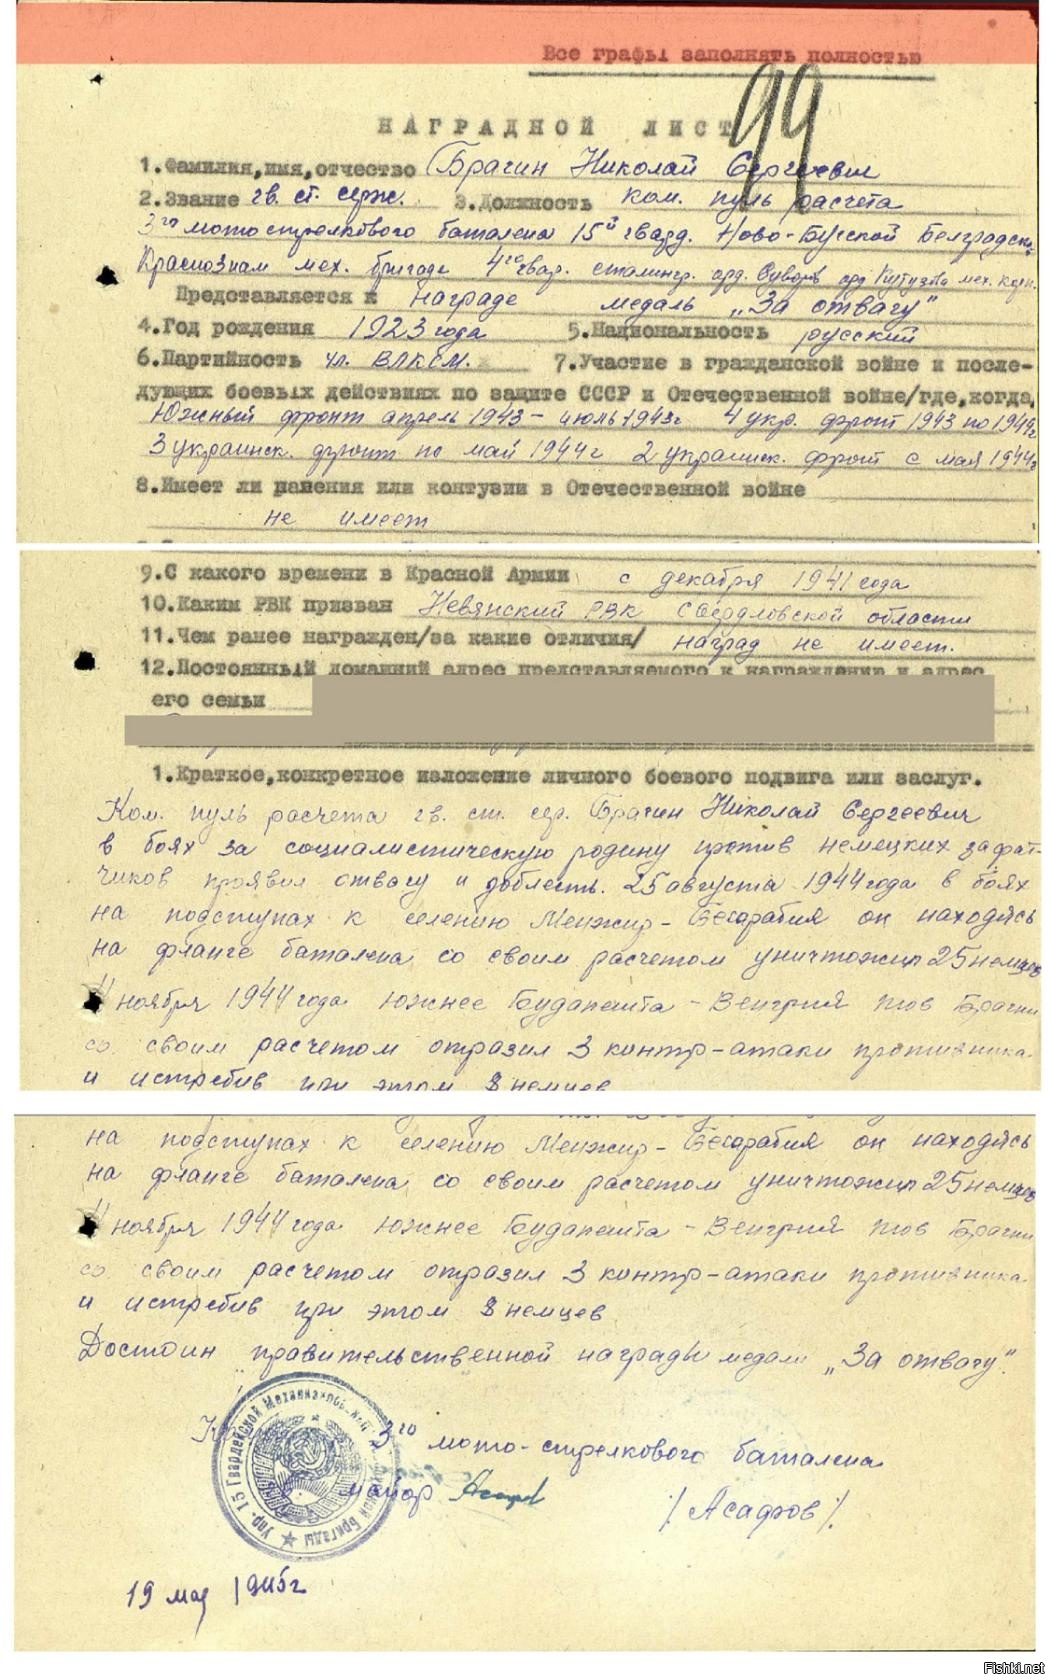 Все графы заполнять полностью
99
НАГРАДНОЙ ЛИСТ
1.Фамилия,имя,отчество Брагин Николай Сергеевич
2.Звание гв. ст. серж. 3.Должность ком. пуль расчета
3го мотострелкового баталена 15й гвард. Ново-Бугской Белградск.
Краснознам мех. бригаде 4го гвар. сталингр. орд. Суворов орд Кутузова мех. корп.
Представляется к награде медаль „За отвагу"
4.Год рождения 1923 года 5.Национальность русский
6.Партийность чл. ВЛКСМ. 7.Участие в гражданской войне и после-
дующих боевых действиях по защите СССР и Отечественной войне/где,когда,
Южный фронт апрель 1943 - июль 1943г 4 укр. фронт 1943 по 1944г
3 украинск. фронт по май 1944г 2 украинск. фронт с мая 1944г
8.Имеет ли ранения или контузии в Отечественной войне
не имеет
9.С какого времени в Красной Армии с декабря 1941 года
10.Каким РВК призван Невянский РВК Свердловской области
11.Чем ранее награжден/за какие отличия/ наград не имеет.
12.Постоянный домашний адрес представляемого к награждению и адрес
его семьи
1.Краткое,конкретное изложение личного боевого подвига или заслуг.
Ком. пуль расчета гв. ст. сер. Брагин Николай Сергеевич
в боях за социалистическую родину против немецких захват-
чиков проявил отвагу и доблесть. 25 августа 1944 года в боях
на подступах к селению Менжир - Бесарабия он находясь
на фланге баталена со своим расчетом уничтожил 25 немцев
4 ноября 1944 года южнее Будапешта - Венгрия тов Брагин
со своим расчетом отразил 3 контр-атаки противника.
и истребив при этом 8 немцев
на подступах к селению Менжир - Бесарабия он находясь
на фланге баталена со своим расчетом уничтожил 25 немцев
4 ноября 1944 года южнее Будапешта - Венгрия тов Брагин
со своим расчетом отразил 3 контр-атаки противника.
и истребив при этом 8 немцев
Достоин правительственной награды медали „За отвагу."
3го мото-стрелкового баталена
майор /Асафов/.
Упр. 15 Гвардейской Механизированной Бригады
19 мая 1945г
Fishki.net